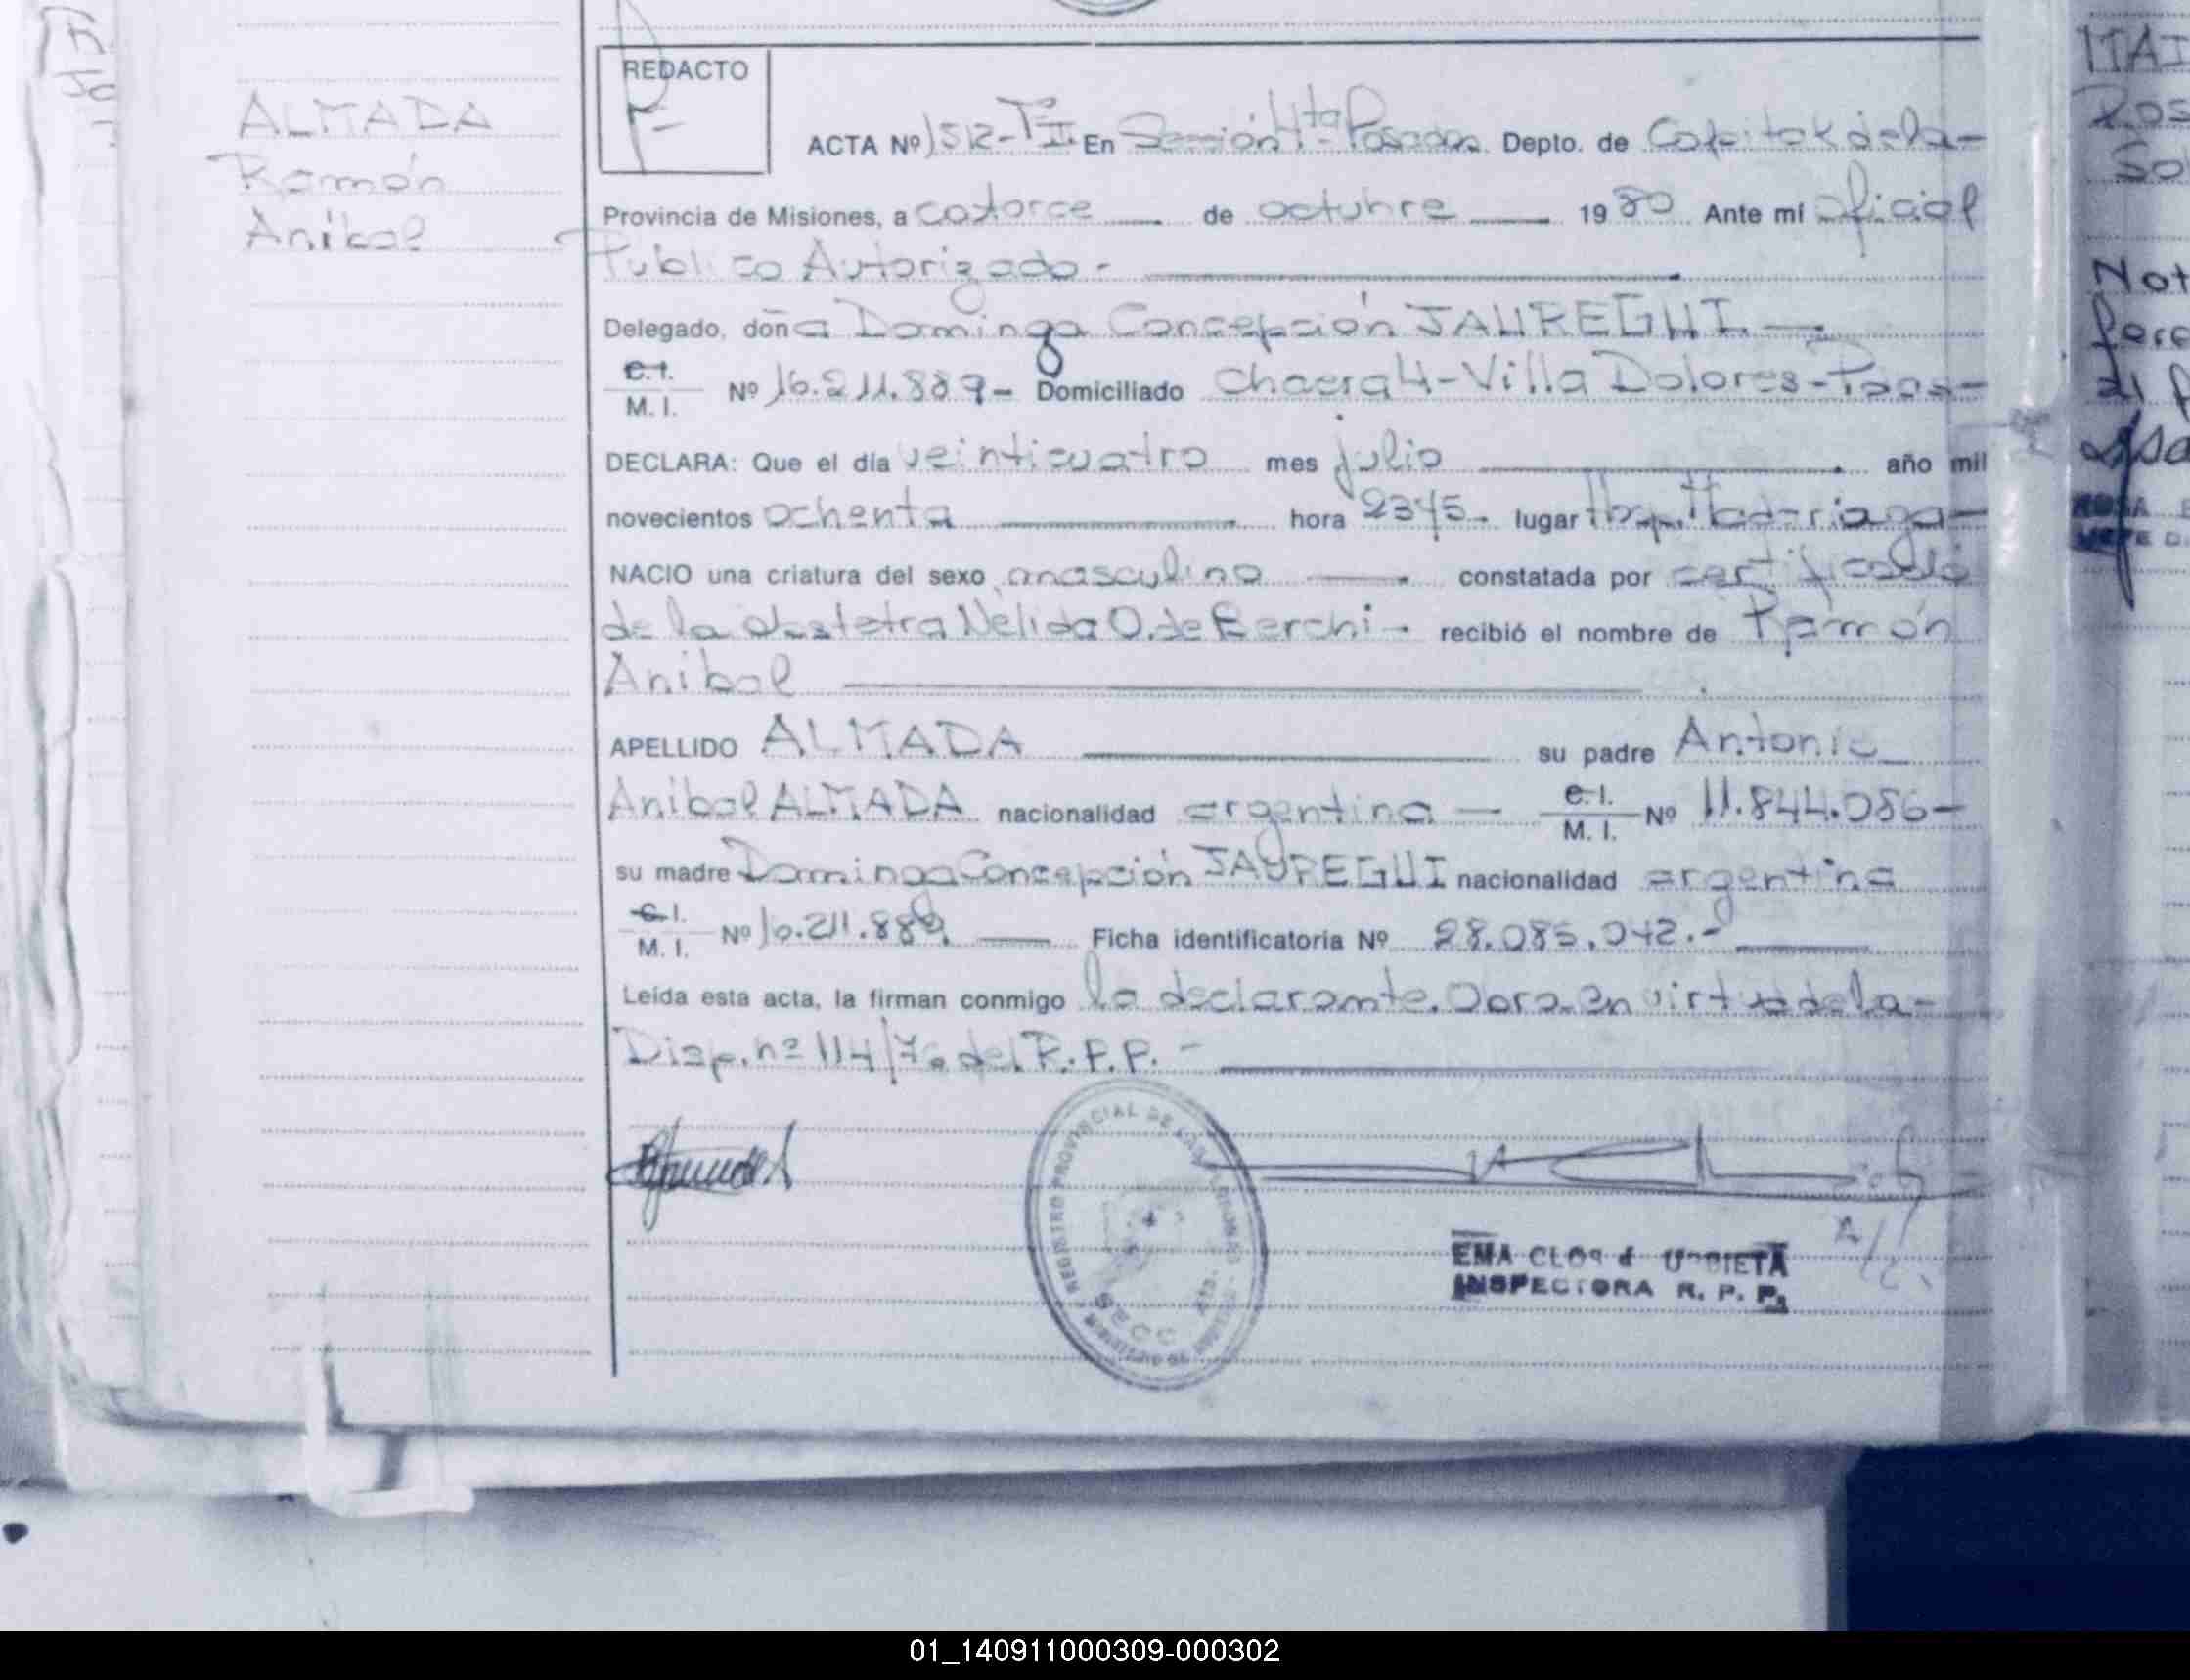 ALMADA
Ramón
Anibal
REDACTO
ACTA Nº 1512-TºII En Sección 4ta Posadas Depto. de Capital de la-
Provincia de Misiones, a catorce de octubre 1980 Ante mí oficial
Publico Autorizado.-
Delegado, doña Dominga Concepción JAUREGUI.
C.I.
M.I. Nº 16.211.889- Domiciliado Chacra 4-Villa Dolores-
DECLARA: Que el día veinticuatro mes julio año mil
novecientos ochenta hora 2345. lugar Hosp. Madariaga-
NACIO una criatura del sexo masculino constatada por certificado
de la obstetra Nelida O. de Berchi- recibió el nombre de Ramón
Anibal
APELLIDO ALMADA su padre Antonio
Anibal ALMADA nacionalidad argentina C.I.
M.I. Nº 11.844.086-
su madre Dominga Concepción JAUREGUI nacionalidad argentina
C.I.
M.I. Nº 16.211.889. Ficha identificatoria Nº 28.085.042.-
Leída esta acta, la firman conmigo la declarante. Obra en virtud de la-
Disp. nº 114/76 del R.P.P.-
REGISTRO PROVINCIAL DE LAS PERSONAS
SECC. 4ta.
EMA CLOS d URRIETA
INSPECTORA R. P. P.
01_140911000309-000302